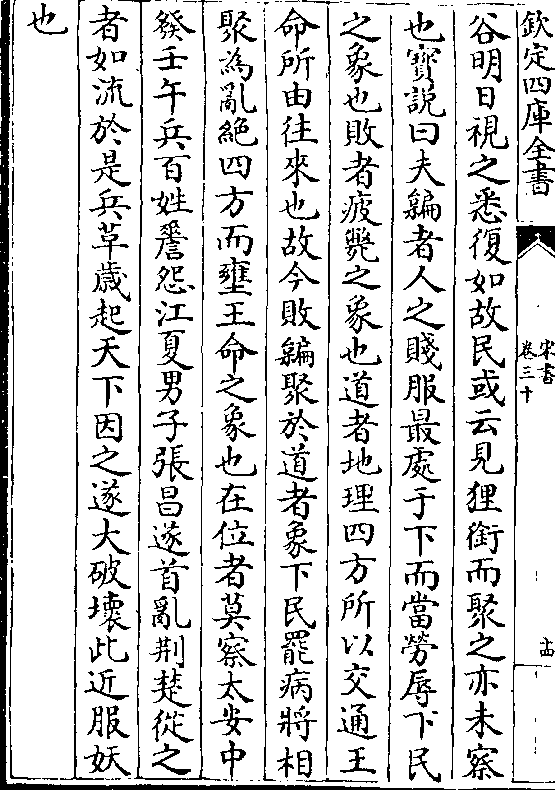 欽定四庫全書
宋書
卷三十
谷明日視之悉復如故民或云見狸銜而聚之亦未察
也寳說曰夫𦿉者人之賤服最處于下而當勞辱下民
之象也敗者疲斃之象也道者地理四方所以交通王
命所由往來也故今敗𦿉聚於道者象下民罷病將相
聚為亂絶四方而壅王命之象也在位者莫察太安中
發壬午兵百姓嗟怨江夏男子張昌遂首亂荆楚從之
者如流於是兵革歲起天下因之遂大破壞此近服妖
也